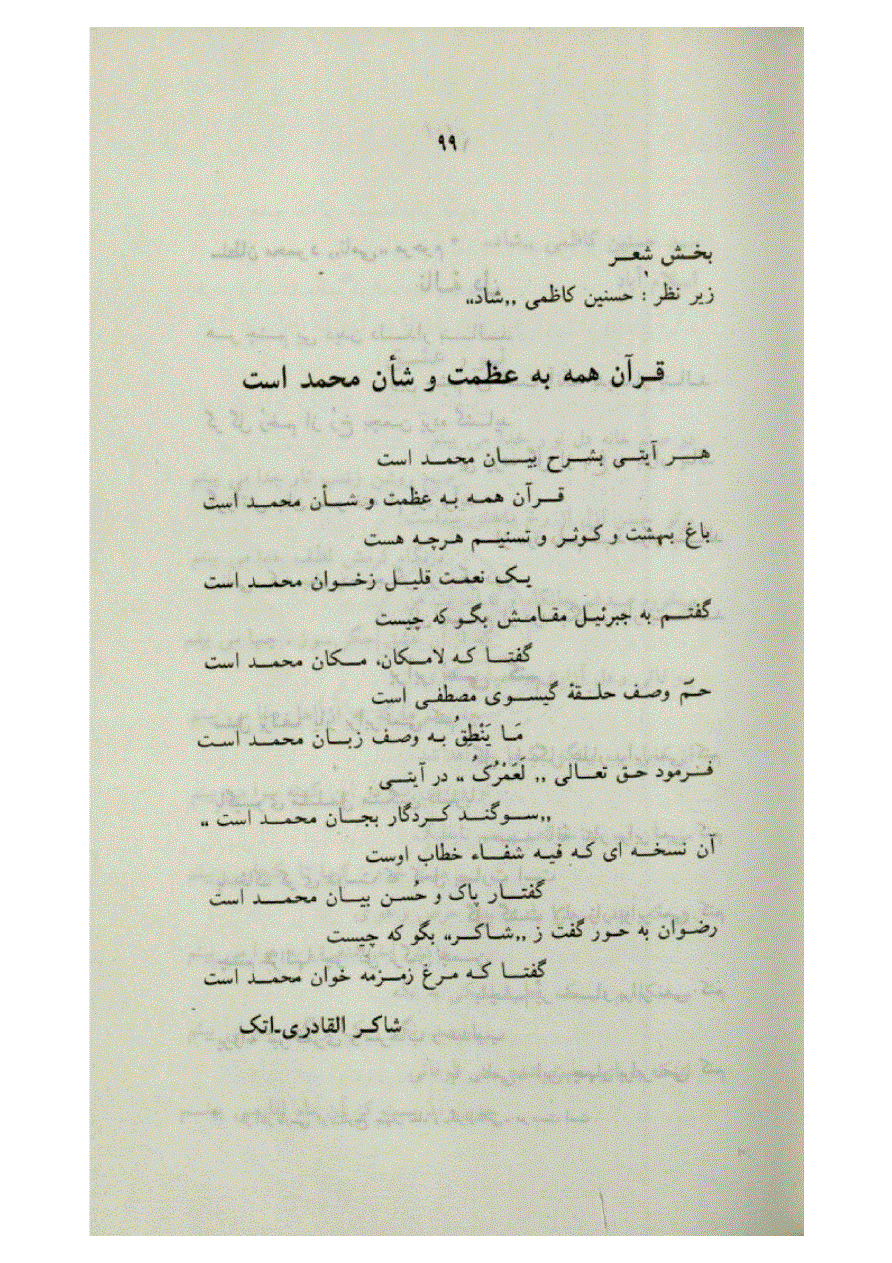 ۹۹
بخش شعر
زیر نظر : حسنین کاظمی ,,شاد,,
قرآن همه به عظمت و شأن محمد است
هر آیتی بشرح بیان محمد است
قرآن همه به عظمت و شأن محمد است
باغ بهشت و کوثر و تسنیم هرچه هست
یک نعمت قلیل زخوان محمد است
گفتم به جبرئیل مقامش بگو که چیست
گفتا که لامکان، مکان محمد است
حمّ وصف حلقهٔ گیسوی مصطفی است
مَا یَنْطِقُ به وصف زبان محمد است
فرمود حق تعالی ,, لَعَمْرُکُ ,, در آیتی
,,سوگند کردگار بجان محمد است ,,
آن نسخه ای که فیه شفاء خطاب اوست
گفتار پاک و حُسن بیان محمد است
رضوان به حور گفت ز ,,شاکر,, بگو که چیست
گفتا که مرغ زمزمه خوان محمد است
شاکر القادری-اتک